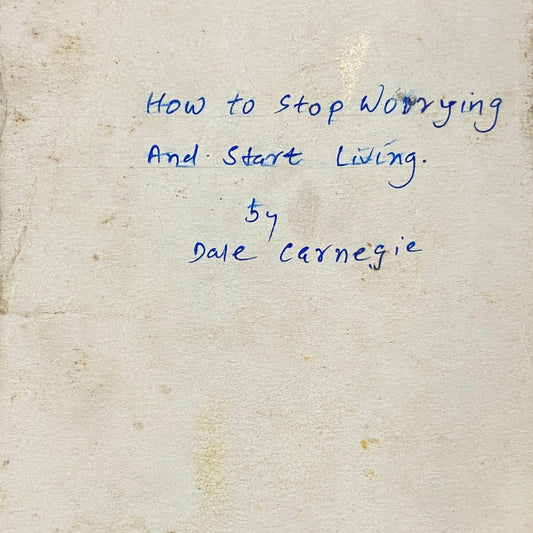 How to Stop Worrying
And. Start Living.
by
Dale Carnegie